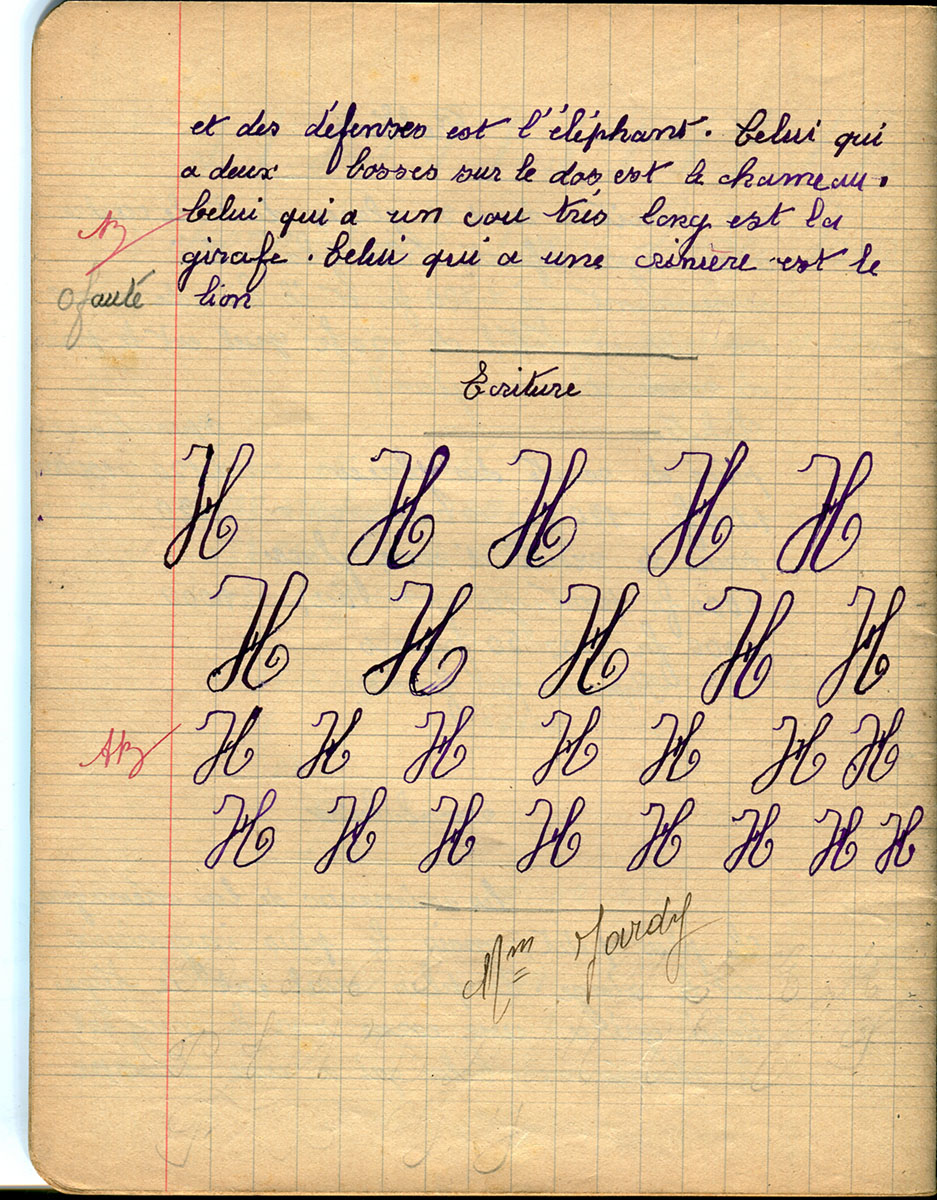 et des défenses est l'éléphant. Celui qui
a deux bosses sur le dos est le chameau.
Celui qui a un cou très long est la
girafe. Celui qui a une crinière est le
lion
B
0 fauté
Ecriture
H H H H H
H H H H H
H H H H H H H
AB
H H H H H H H H
Mm